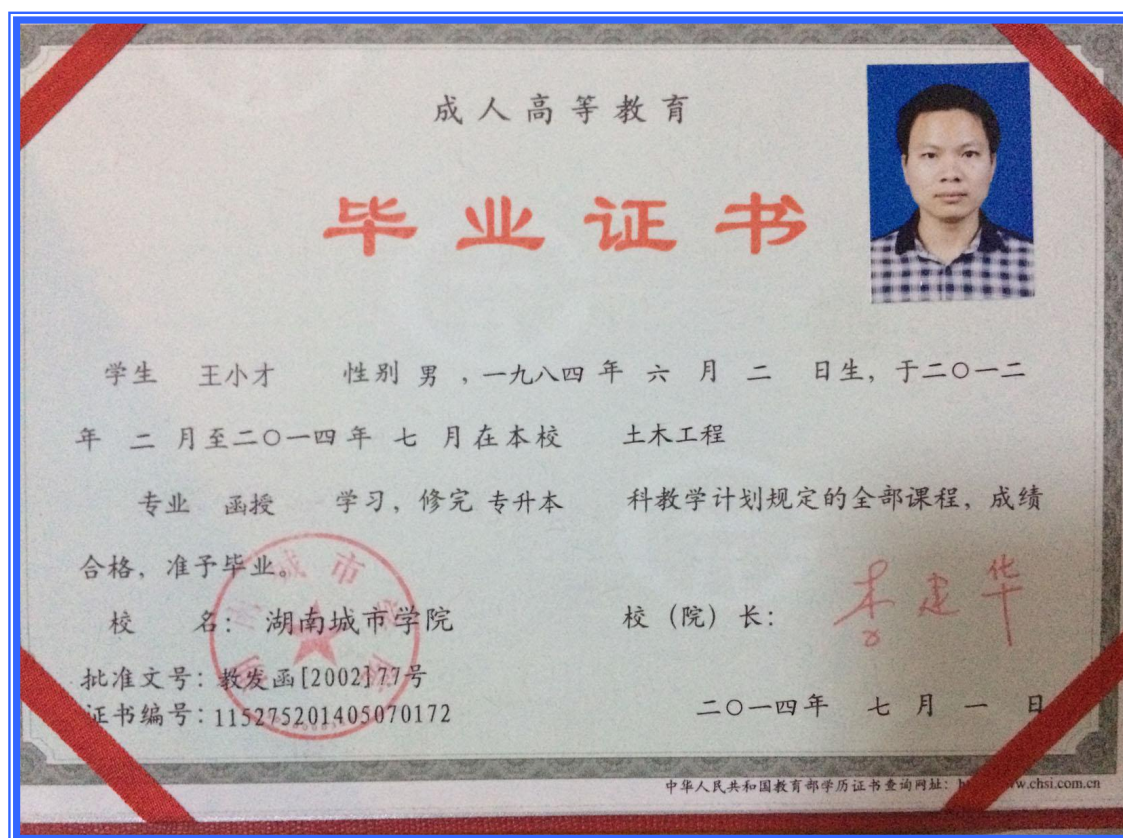 成人高等教育
毕业证书
学生 王小才 性别 男 ，一九八四 年 六 月 二 日生，于二〇一二
年 二 月至二〇一四 年 七 月在本校 土木工程
专业 函授 学习，修完 专升本 科教学计划规定的全部课程，成绩
合格，准予毕业。
校 名：湖南城市学院 校（院）长：李建华
批准文号：教发函[2002]77号
证书编号：115275201405070172 二〇一四年 七 月 一 日
中华人民共和国教育部学历证书查询网址： www.chsi.com.cn